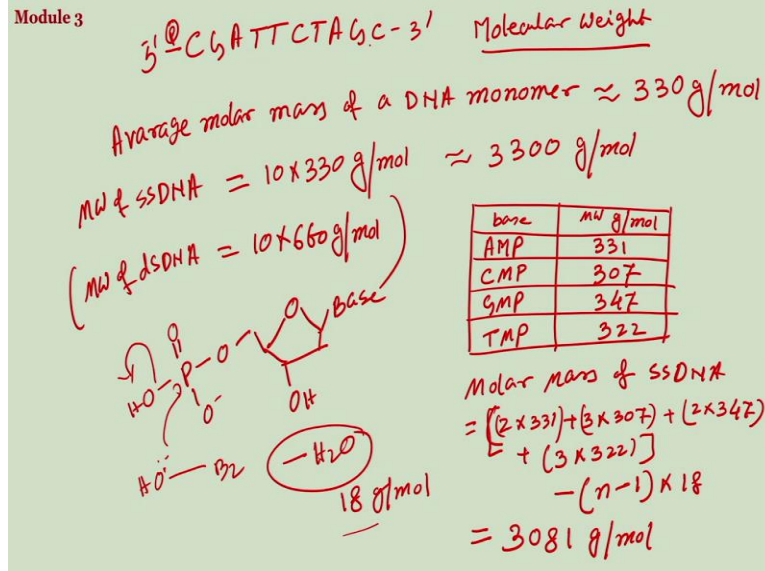 Module 3
5' ⓟCGATTCTAGC-3' Molecular Weight
Avarage molar mass of a DNA monomer ≈ 330 g/mol
MW of ssDNA = 10 x 330 g/mol ≈ 3300 g/mol
(MW of dsDNA = 10x660 g/mol)
base MW g/mol
AMP 331
CMP 307
GMP 347
TMP 322
O
HO-P-O O Base
O-
OH
HÖ-B2
-H2O
18 g/mol
Molar Mass of ssDNA
= [(2 x 331)+(3 x 307) + (2 x 347)
+ (3 x 322)]
-(n-1) x 18
= 3081 g/mol